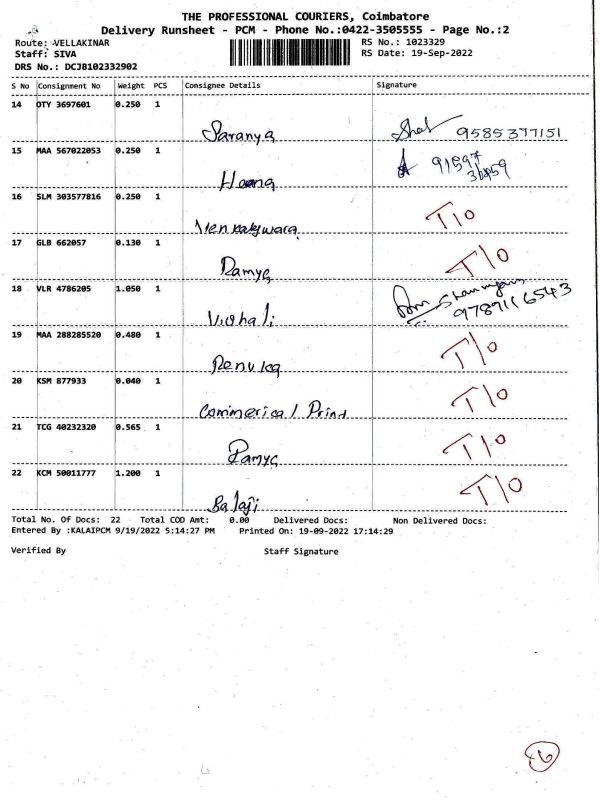 THE PROFESSIONAL COURIERS, Coimbatore
Delivery Runsheet - PCM - Phone No.:0422-3505555 - Page No.:2
Route: VELLAKINAR
RS No.: 1023329
Staff: SIVA
RS Date: 19-Sep-2022
DRS No.: DCJB102332902
S No Consignment No Weight PCS Consignee Details Signature
14 OTY 3697601 0.250 1
Saranya 9585377151
15 MAA 567022053 0.250 1
91597
16 SLM 303577816 0.250 1
T/o
17 GLB 662057 0.130 1
Ramya T/o
18 VLR 4786205 1.050 1
Vishali 9789116543
19 MAA 288285520 0.480 1
Renuka T/o
20 KSM 877933 0.040 1
Commerical Print T/o
21 TCG 40232320 0.565 1
Ramya T/o
22 KCM 50011777 1.200 1
Balaji T/o
Total No. Of Docs: 22 Total COD Amt: 0.00 Delivered Docs: Non Delivered Docs:
Entered By :KALAIPCM 9/19/2022 5:14:27 PM Printed On: 19-09-2022 17:14:29
Verified By Staff Signature